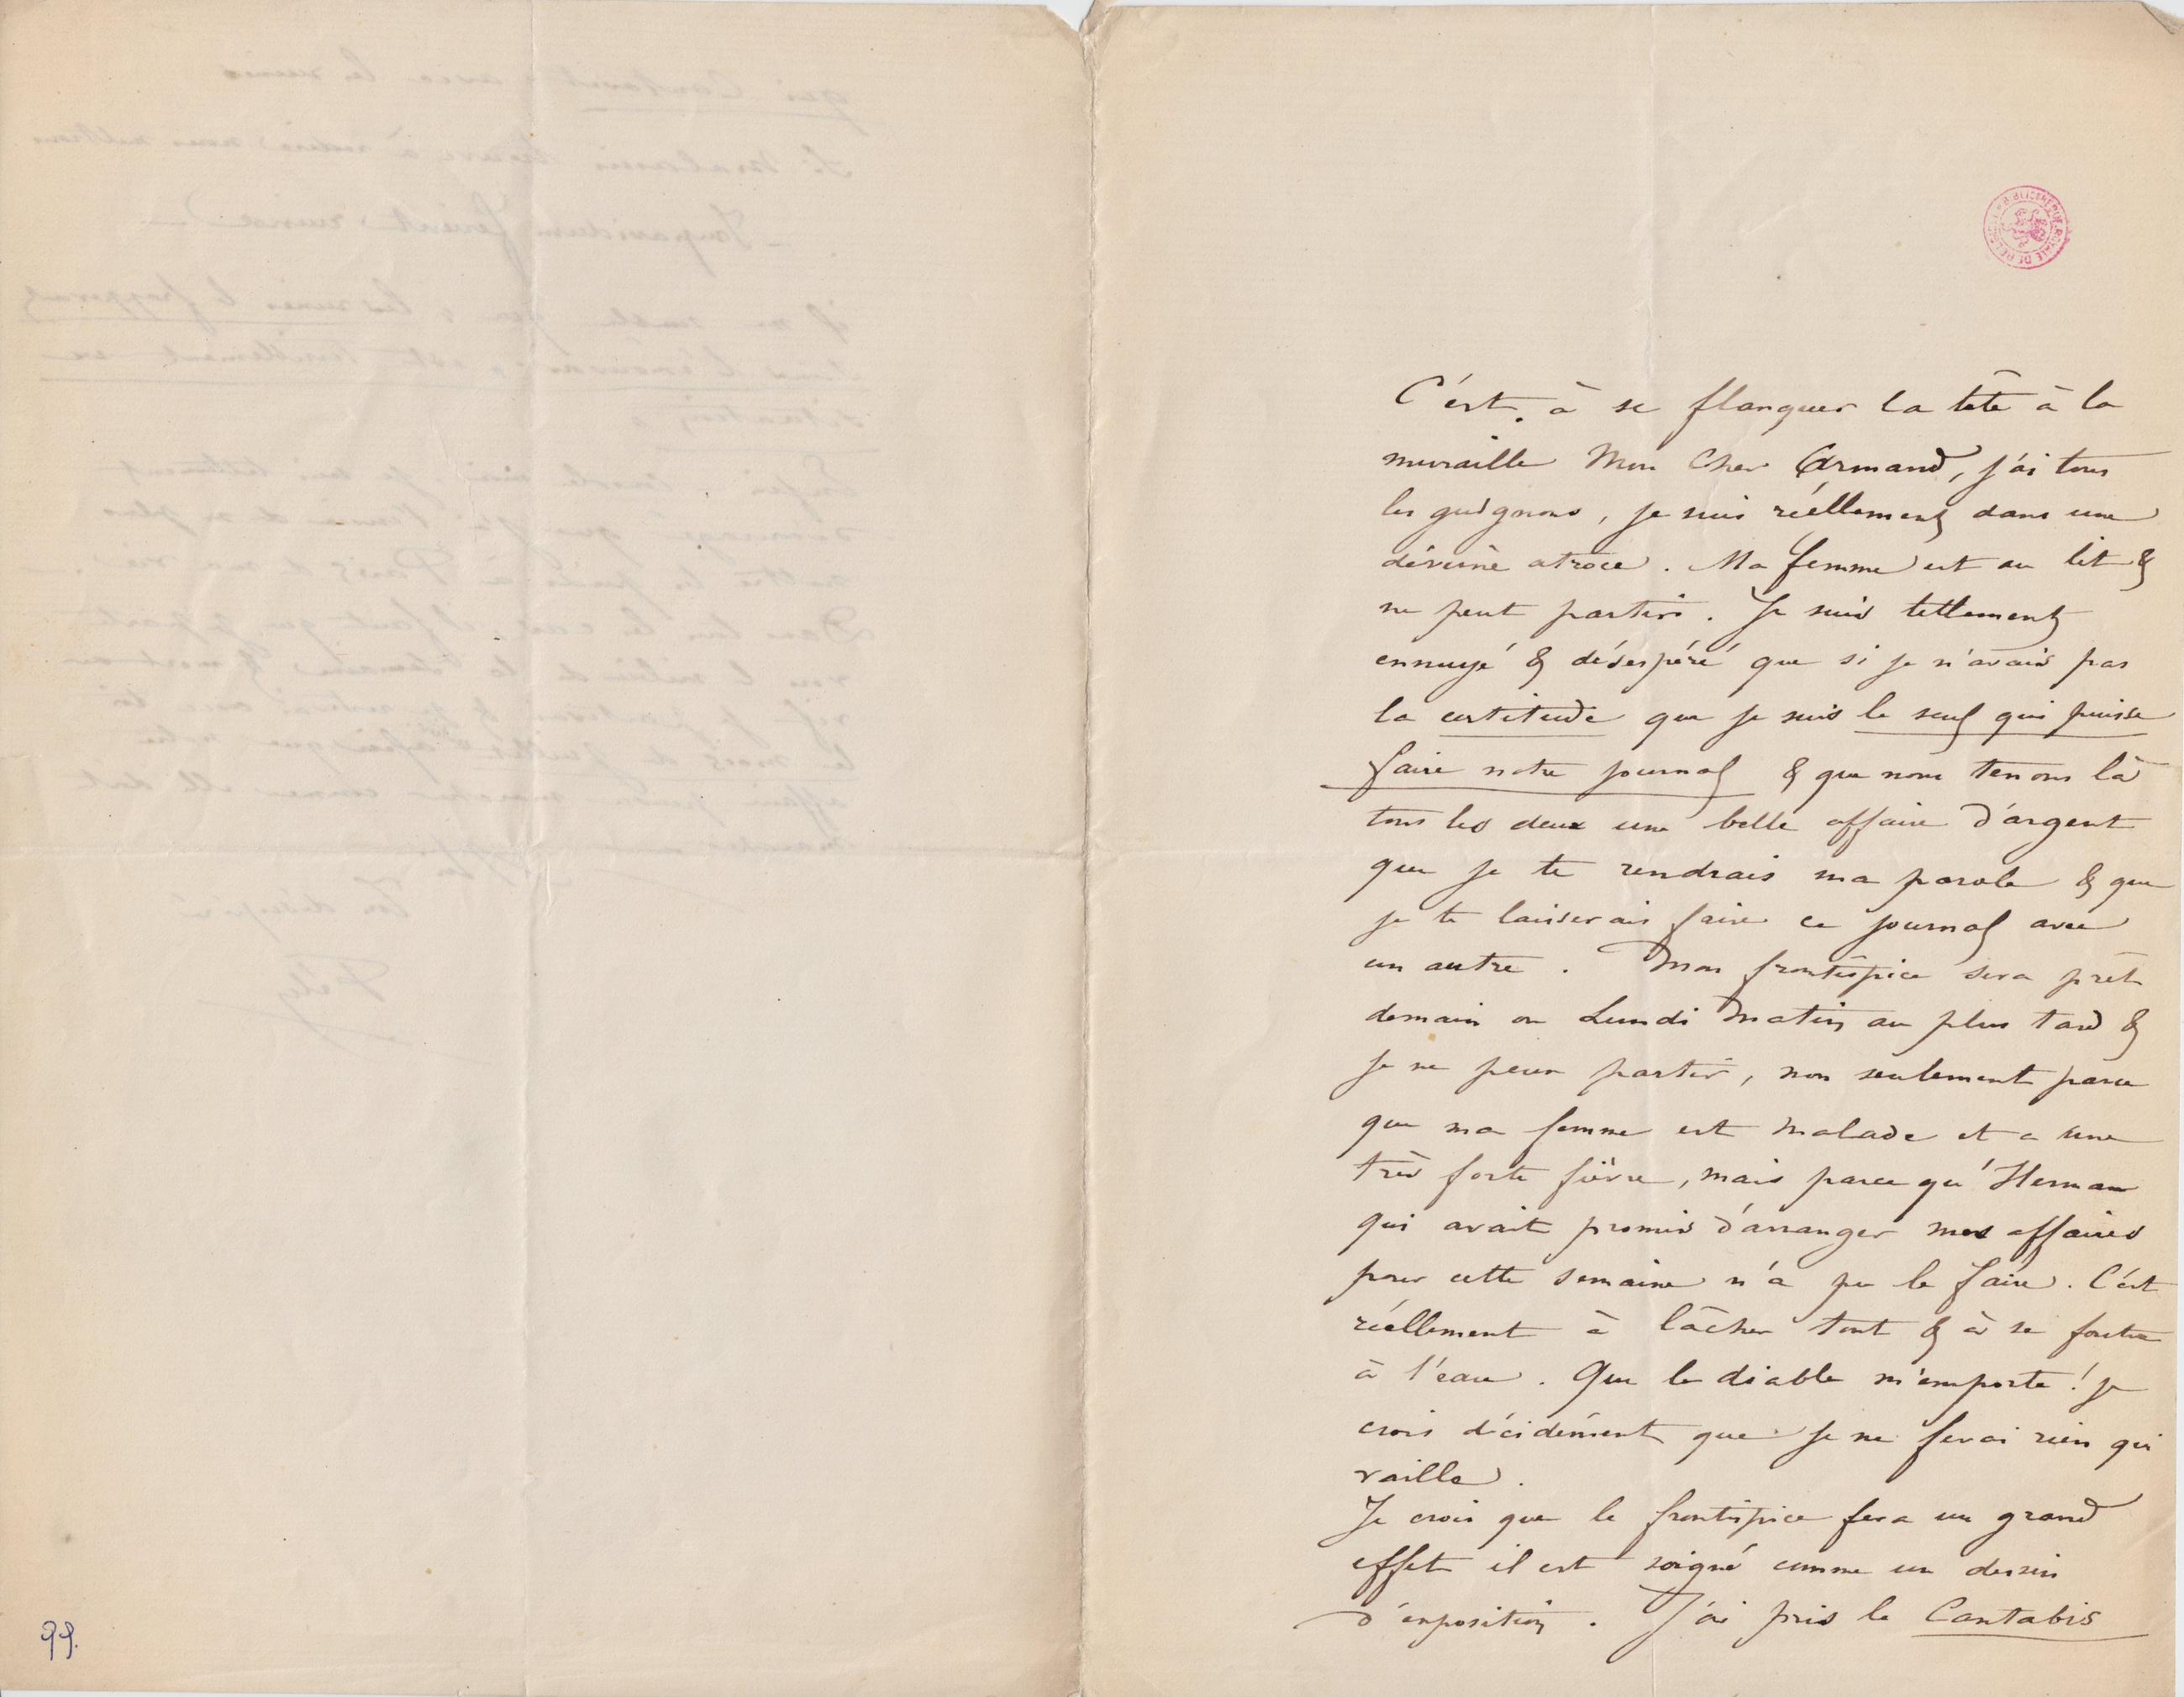 C'est à se flanquer la tête à la
muraille Mon Cher Armand, j'ai tous
les guignons, je suis réellement dans une
déveine atroce. Ma femme est au lit &
ne peut partir. Je suis tellement
ennuyé & désespéré que si je n'avais pas
la certitude que je suis le seul qui puisse
faire notre journal & que nous tenons là
tous les deux une belle affaire d'argent
que je te rendrais ma parole & que
je te laisserais faire ce journal avec
un autre. Mon frontispice sera prêt
demain ou Lundi Matin au plus tard &
je ne peux partir, non seulement parce
que ma femme est malade et a une
très forte fièvre, mais parce qu'Herman
qui avait promis d'arranger mes affaires
pour cette semaine n'a pu le faire. C'est
réellement à lâcher tout & à se foutre
à l'eau. Que le diable m'emporte! je
crois décidément que je ne ferai rien qui
vaille.
Je crois que le frontispice fera un grand
effet il est soigné comme un dessin
d'exposition. J'ai pris le Cantabis
99.